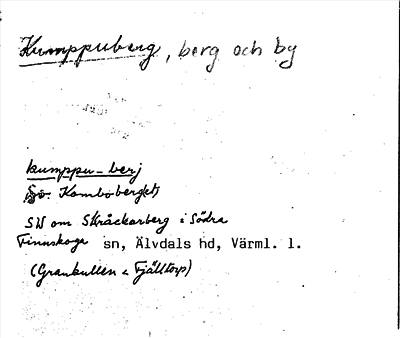 Kumppuberg, berg och by
kumppu-berj
Kamboberget)
SW om Skråckarberg i Södra
Finnskoga sn, Älvdals hd, Värml. l.
(Grankullen & Fjälltorp)